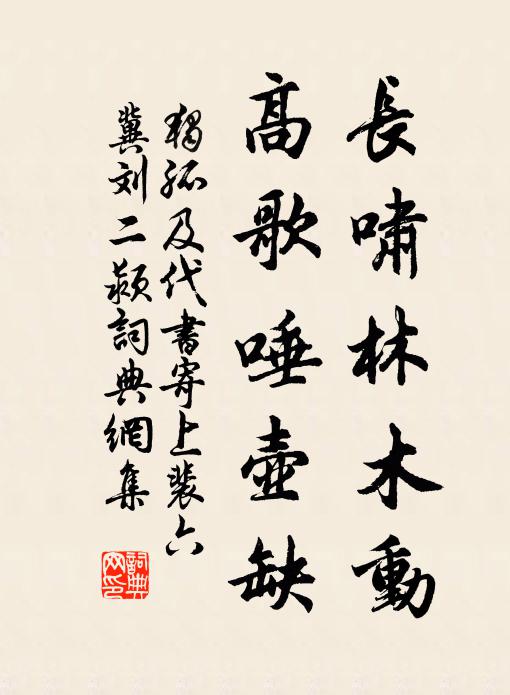 長嘯林木動
高歌唾壺缺
獨孤及代書寄上裴六
冀刘二潁詞典網集
詞典
网印